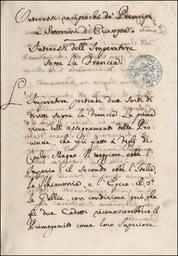 Interessi reciprochi de Principi
e Sovrani d'Europa.
Interessi dell'Imperatore
sopra la Francia.
L'Imperatore pretende due sorti di
sopra la Francia. La prima
viene dall'assegnamento delle Pro
uincie, che già fatto a Figli di
Carlo Magno. Il maggiore ebbe l'
Imperio il secondo ebbe l'Italia,
la e il 3°
le Gallie, con condizione però, che
gli due Cadetti riconoscerebbero il
Primogenito come loro Superiore